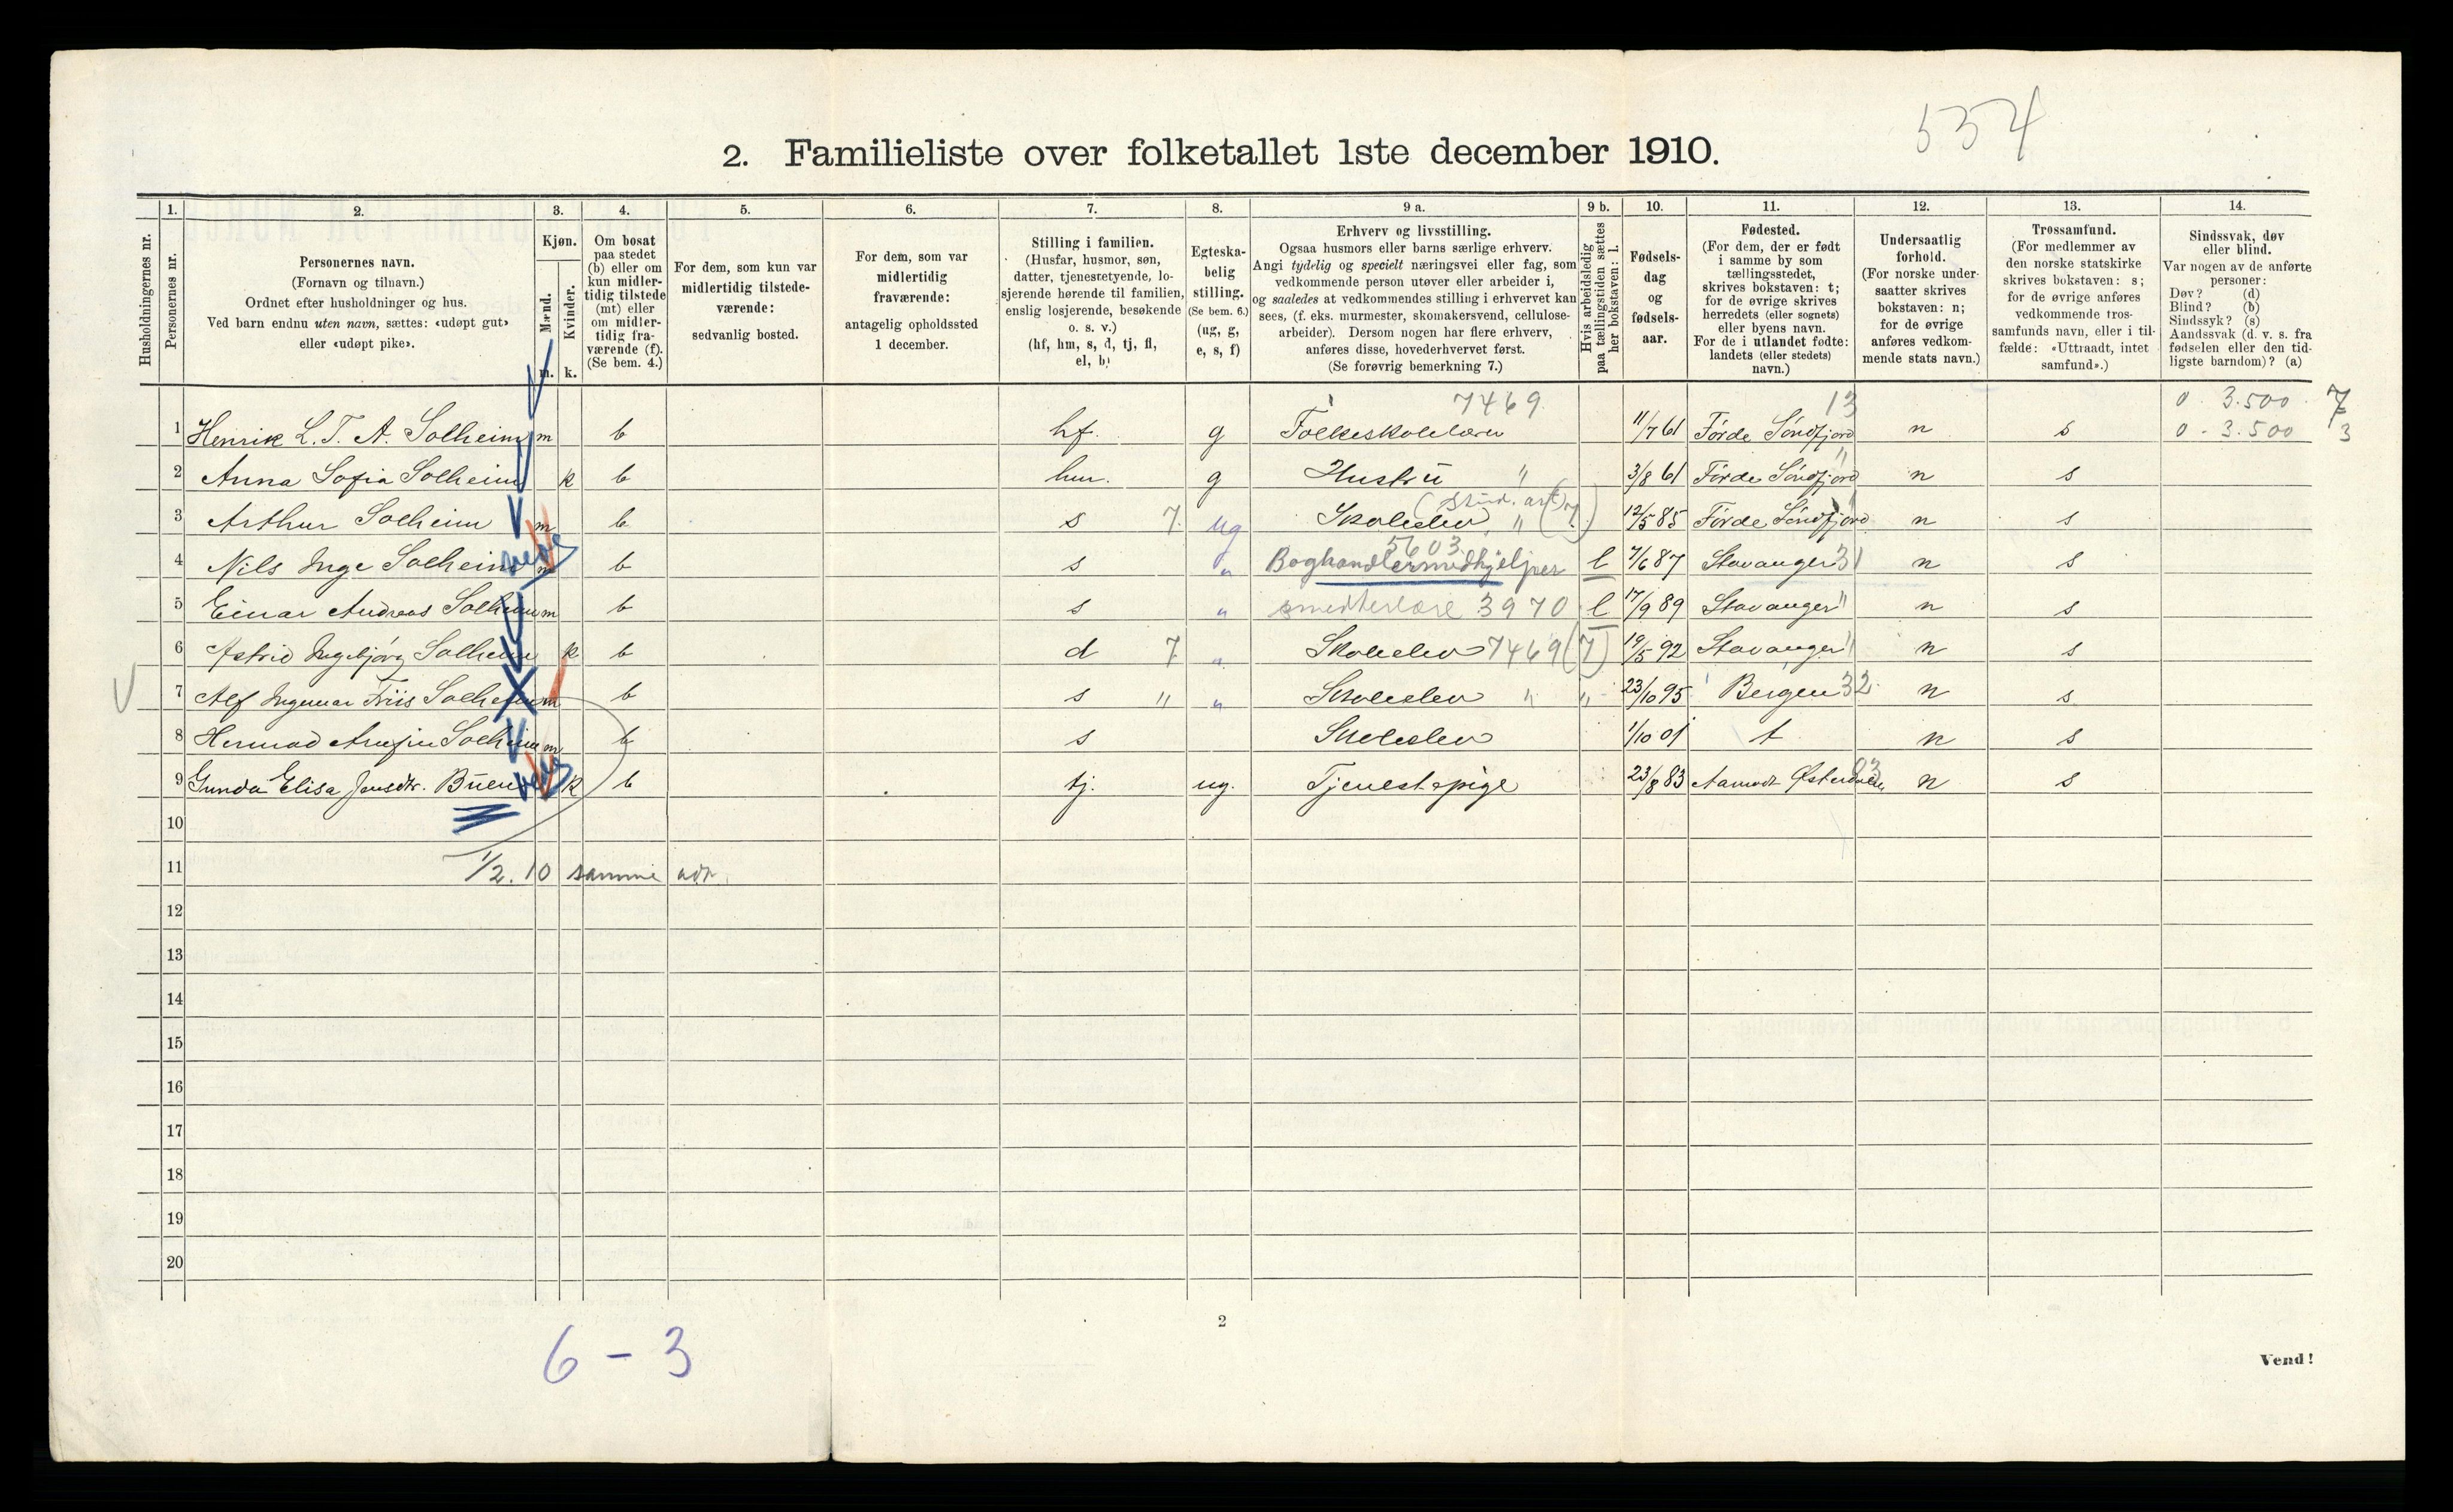 534
2. Familieliste over folketallet 1ste december 1910.
Husholdningernes nr.
1.
Personernes nr.
2.
Personernes navn.
(Fornavn og tilnavn.)
Ordnet efter husholdninger og hus.
Ved barn endnu uten navn, sættes: «udøpt gut»
eller «udøpt pike».
3.
Kjøn.
Mænd.
Kvinder.
m. k.
4.
Om bosat
paa stedet
(b) eller om
kun midler-
tidig tilstede
(mt) eller
om midler-
tidig fra-
værende (f).
(Se bem. 4.)
5.
For dem, som kun var
midlertidig tilstede-
værende:
sedvanlig bosted.
6.
For dem, som var
midlertidig
fraværende:
antagelig opholdssted
1 december.
7.
Stilling i familien.
(Husfar, husmor, søn,
datter, tjenestetyende, lo-
sjerende hørende til familien,
enslig losjerende, besøkende
o. s. v.)
(hf, hm, s, d, tj, fl,
el, b)
8.
Egteska-
belig
stilling.
(Se bem. 6.)
(ug, g,
e, s, f)
9 a.
Erhverv og livsstilling.
Ogsaa husmors eller barns særlige erhverv.
Angi tydelig og specielt næringsvei eller fag, som
vedkommende person utøver eller arbeider i,
og saaledes at vedkommendes stilling i erhvervet kan
sees, (f. eks. murmester, skomakersvend, cellulose-
arbeider). Dersom nogen har flere erhverv,
anføres disse, hovederhvervet først.
(Se forøvrig bemerkning 7.)
9 b.
Hvis arbeidsledig
paa tællingstiden sættes
her bokstaven: l.
10.
Fødsels-
dag
og
fødsels-
aar.
11.
Fødested.
(For dem, der er født
i samme by som
tællingsstedet,
skrives bokstaven: t;
for de øvrige skrives
herredets (eller sognets)
eller byens navn.
For de i utlandet fødte:
landets (eller stedets)
navn.)
12.
Undersaatlig
forhold.
(For norske under-
saatter skrives
bokstaven: n;
for de øvrige
anføres vedkom-
mende stats navn.)
13.
Trossamfund.
(For medlemmer av
den norske statskirke
skrives bokstaven: s;
for de øvrige anføres
vedkommende tros-
samfunds navn, eller i til-
fælde: «Uttraadt, intet
samfund».)
14.
Sindssvak, døv
eller blind.
Var nogen av de anførte
personer:
Døv? (d)
Blind? (b)
Sindssyk? (s)
Aandssvak (d. v. s. fra
fødselen eller den tid-
ligste barndom)? (a)
7469 13 0 - 3.500 7
1 Henrik L. T. A. Solheim m b hf. g Folkeskolelærer 11/7 61 Førde Søndfjord n s 0 - 3.500 3
2 Anna Sofia Solheim k b hm. g Hustru " 3/8 61 Førde Søndfjord " n s
(stud. art)
3 Arthur Solheim m b s 7. ug Skoleelev " (7) 12/5 85 Førde Søndfjord n s
5603
4 Nils Inge Solheim m b s " Boghandlermedhjelper l 7/6 87 Stavanger 31 n s
5 Einar Andreas Solheim m b s " smedlerlære 3970 l 17/9 89 Stavanger " n s
6 Astrid Ingebjørg Solheim k b d 7 " Skoleelev 7469 (7) 19/5 92 Stavanger " n s
7 Alf Ingemar Friis Solheim m b s " " Skoleelev " " 23/10 95 Bergen 32 n s
8 Hermod Arnfin Solheim m b s Skoleelev 1/10 01 t n s
9 Gunda Elisa Jensdtr. Buen k b tj. ug. Tjenestepige 23/8 83 Aamodt Østerdalen 03 n s
10
11 1/2.10 samme adr.
12
13
14
15
16
17
18
19
20
2
6 - 3
Vend!